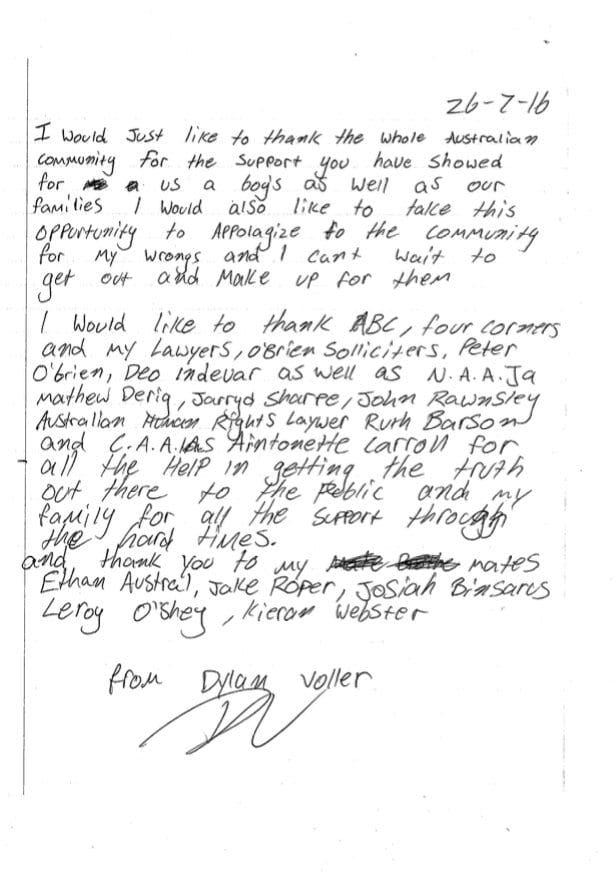 26-7-16
I would Just like to thank the whole Australian
community for the support you have showed
for us a boys as well as our
families I would also like to take this
opportunity to Appolagize to the community
for my wrongs and I cant wait to
get out and Make up for them
I would like to thank ABC, four corners
and my Lawyers, O'Brien Solliciters, Peter
O'brien, Deo Indevar as well as N.A.A.Ja
Mathew Derig, Jarryd Sharpe, John Rawnsley
Australian Human Rights Laywer Ruth Barson
and C.A.A.LAS Aintonette Carroll for
all the Help in getting the truth
out there to the Public and my
family for all the support through
the hard times.
and thank you to my mates
Ethan Austral, Jake Roper, Josiah Binsarus
Leroy O'Shey, Kieran Webster
from Dylan Voller